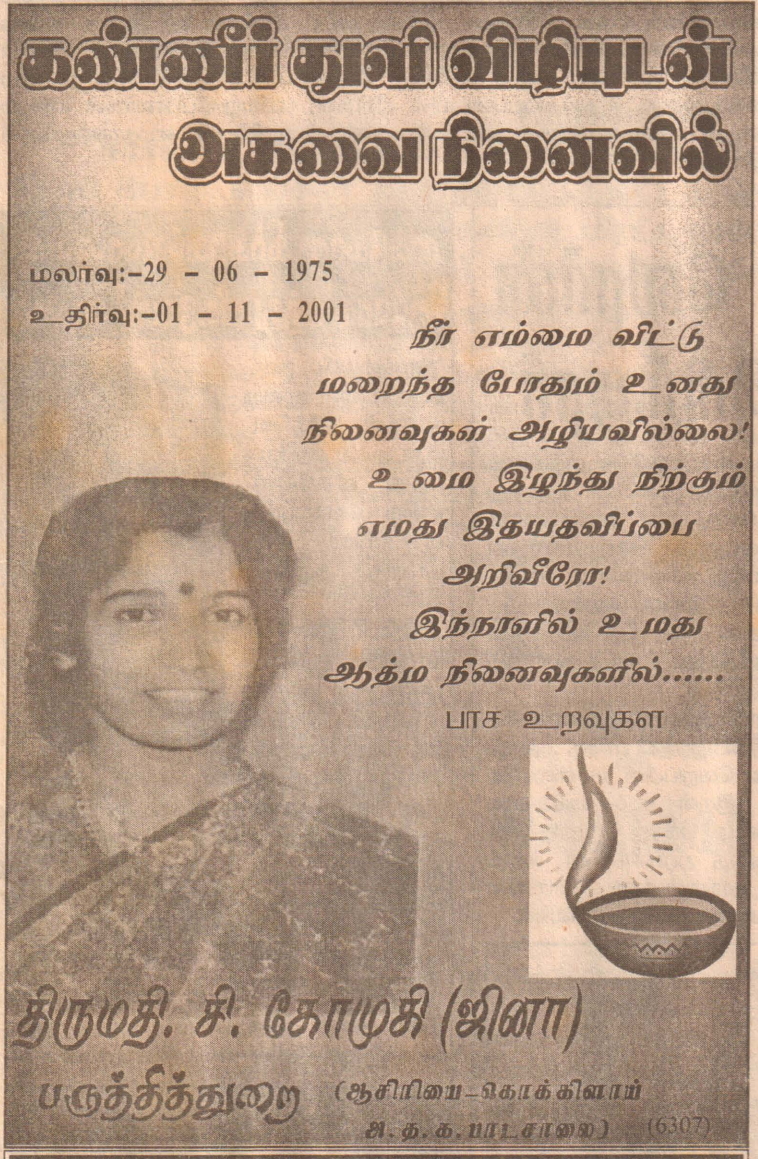 கண்ணீர் துளி விழியுடன்
அகவை நினைவில்
மலர்வு:-29 - 06 - 1975
உதிர்வு:-01 - 11 - 2001
நீர் எம்மை விட்டு
மறைந்த போதும் உனது
நினைவுகள் அழியவில்லை!
உமை இழந்து நிற்கும்
எமது இதயதவிப்பை
அறிவீரோ!
இந்நாளில் உமது
ஆத்ம நினைவுகளில்......
பாச உறவுகள
திருமதி. சி. கோமுகி (ஜினா)
பருத்தித்துறை (ஆசிரியை-கொக்கிளாய்
அ.த.க.பாடசாலை) (6307)